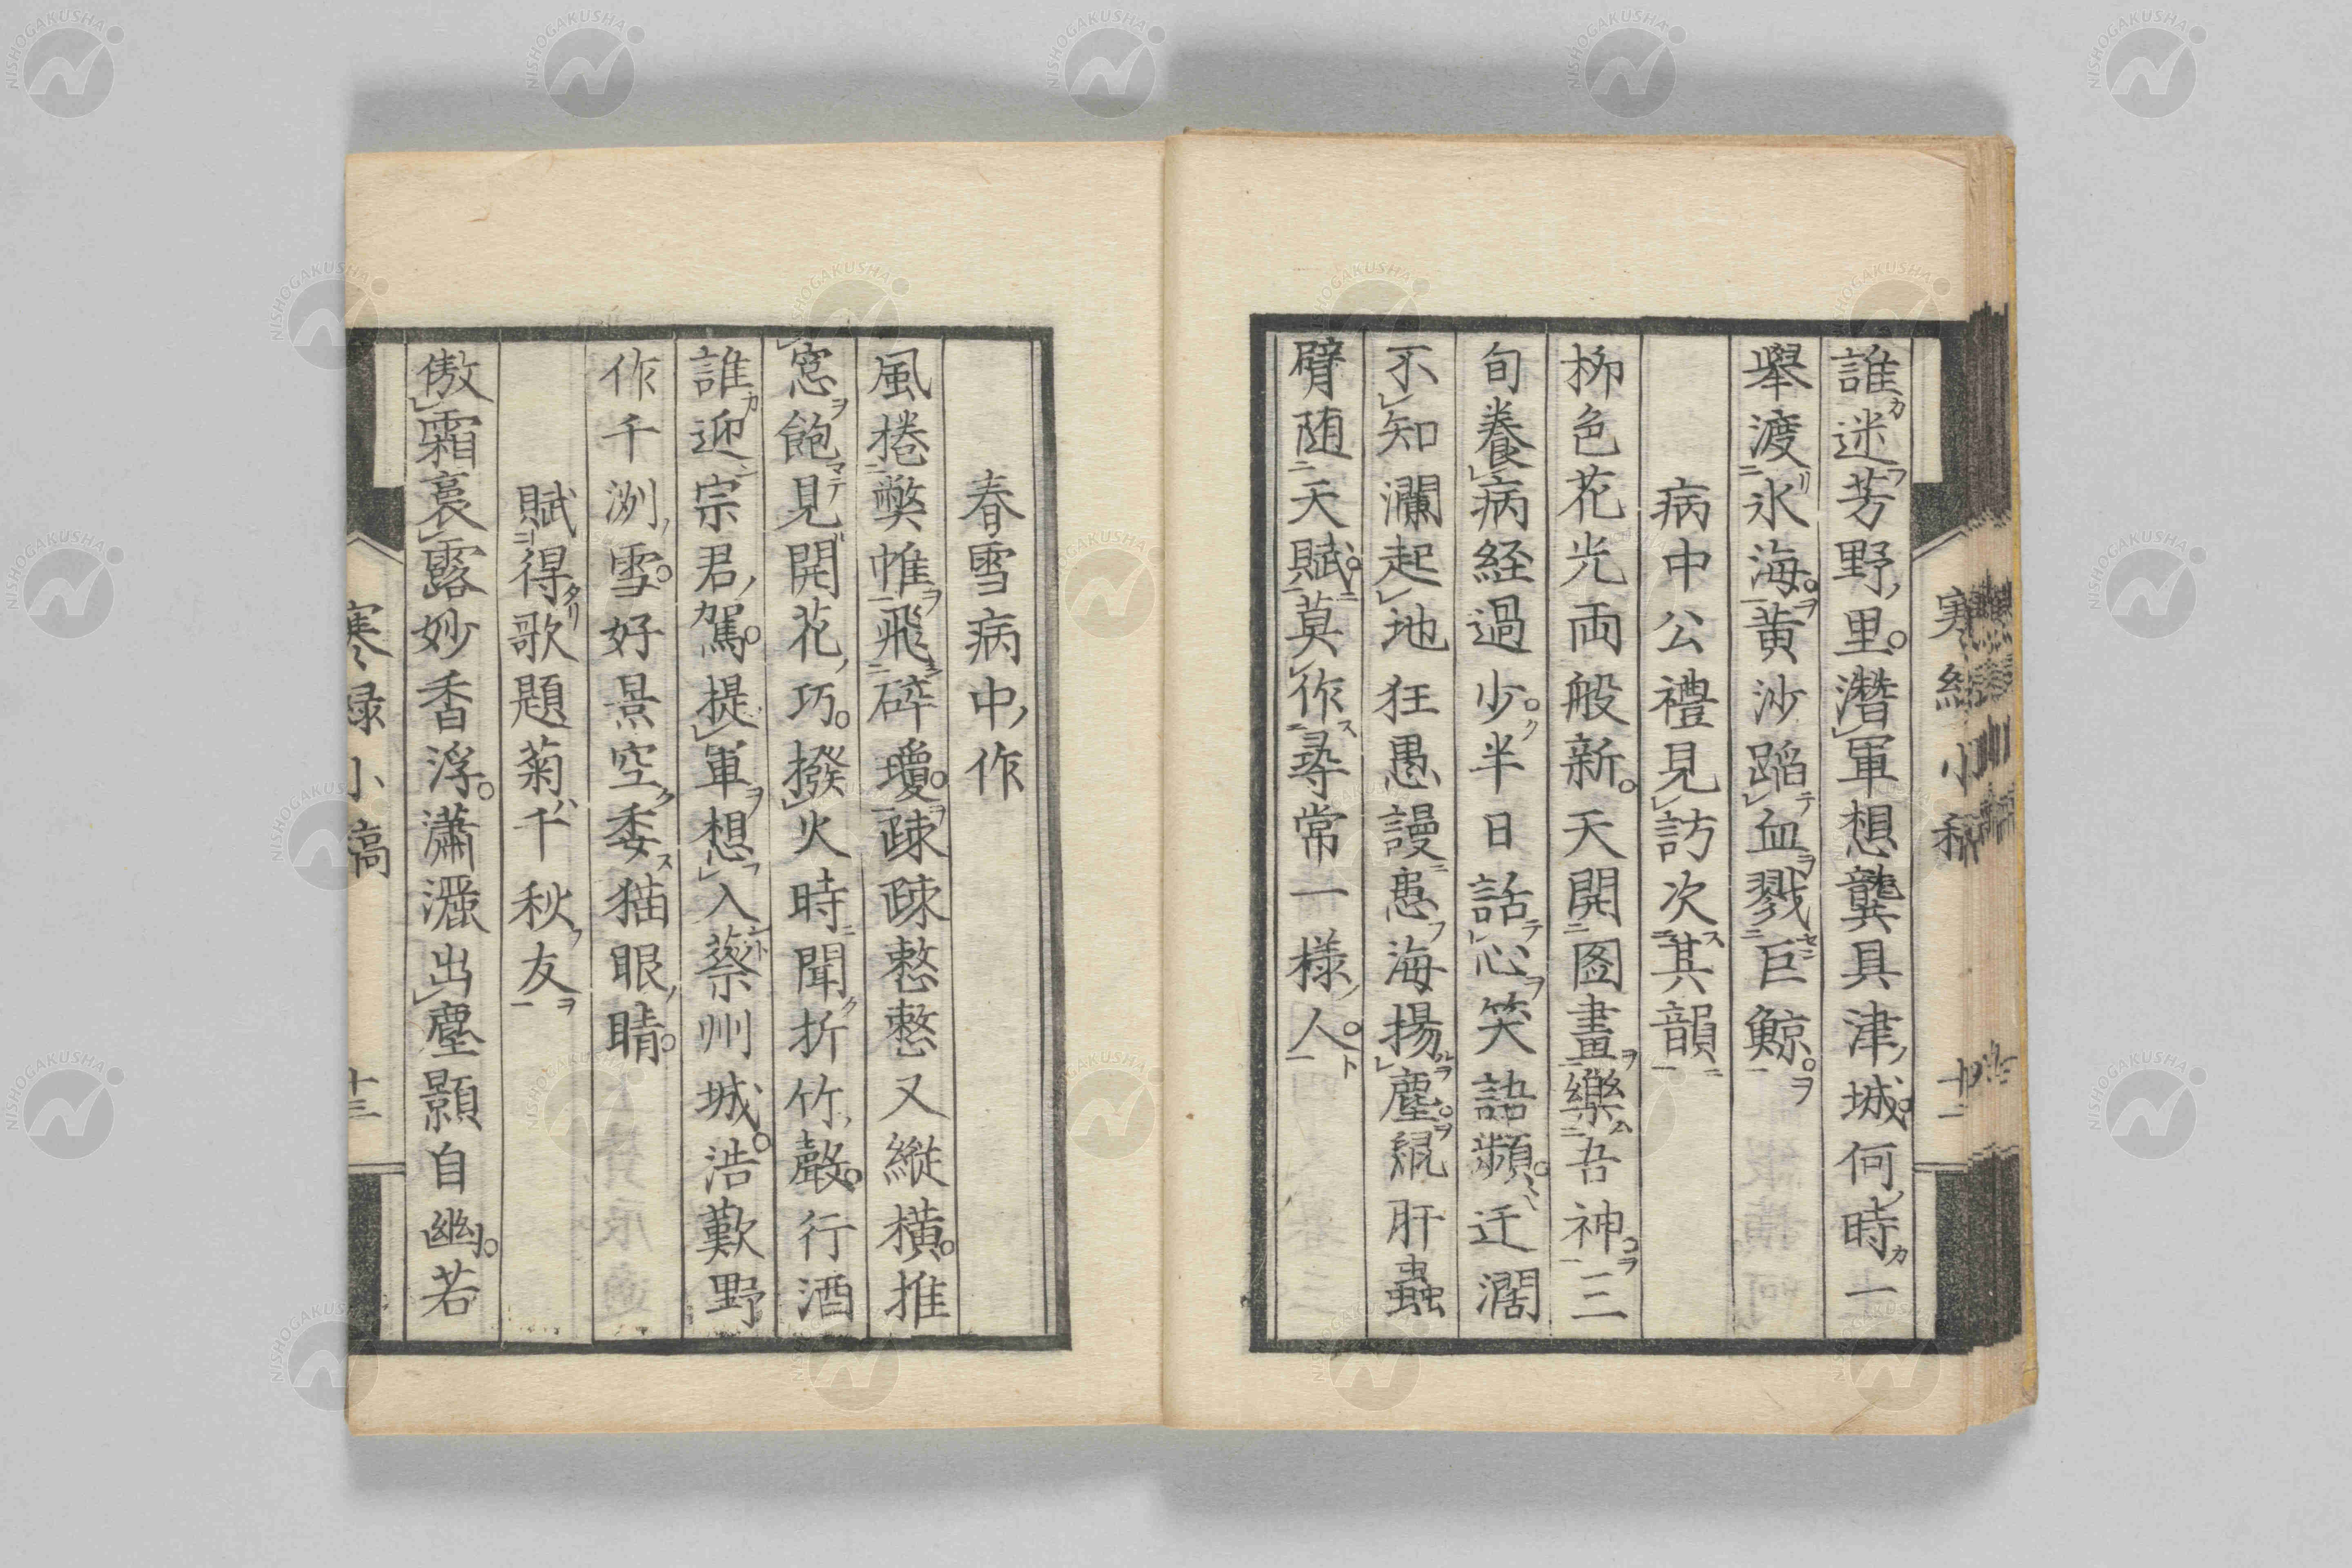 誰迷芳野里。潛軍想龔具津城。何時一
舉渡氷海。黄沙蹈血戮巨鯨。
病中公禮見訪次其韻
柳色花光両般新。天開図畫樂吾神。三
旬養病経過少。半日話心笑語頻。迂濶
不知瀾起地。狂愚謾患海揚塵。鼠肝蟲
臂随天賦。莫作尋常一様人。
春雪病中作
風捲弊帷飛碎瓊。疎疎整整又縱橫。推
窓飽見開花巧。撥火時聞折竹聲。行酒
誰迎宗君駕。提軍想入蔡州城。浩歎野
作千洌雪。好景空委猫眼睛。
賦得歌題菊千秋友
傲霜裛露妙香浮。瀟灑出塵顥自幽。若
寒緑小稿
十二